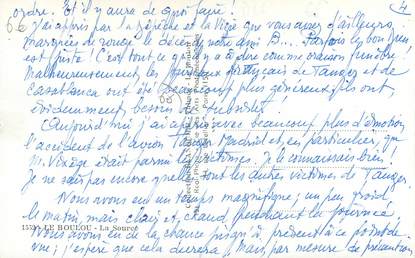 ordre. Et il y aura de quoi faire !
4
J'ai appris par la Dépêche et la Vigie que vous aviez d'ailleurs
marquées de rouge le décès de notre ami B... Parfois le bon Dieu
est juste ! C'est tout ce qu'il y a à dire comme oraison funèbre !
Malheureusement, les journaux français de Tanger et de
Casablanca ont été beaucoup plus généreux, ils ont,
évidemment, besoin de
Aujourd'hui j'ai appris avec beaucoup plus d'émotion
l'accident de l'avion Tanger Madrid et, en particulier, que
M. était parmi les victimes. Je le connaissais bien.
Je ne sais pas encore quelles sont les autres victimes de Tanger.
Nous avons eu un temps magnifique, un peu froid
le matin, mais clair et chaud pendant la journée.
1524 - LE BOULOU - La Source
Nous avons eu de la chance jusqu'à présent à ce point de
vue ; j'espère que cela durera. Mais, par mesure de précaution